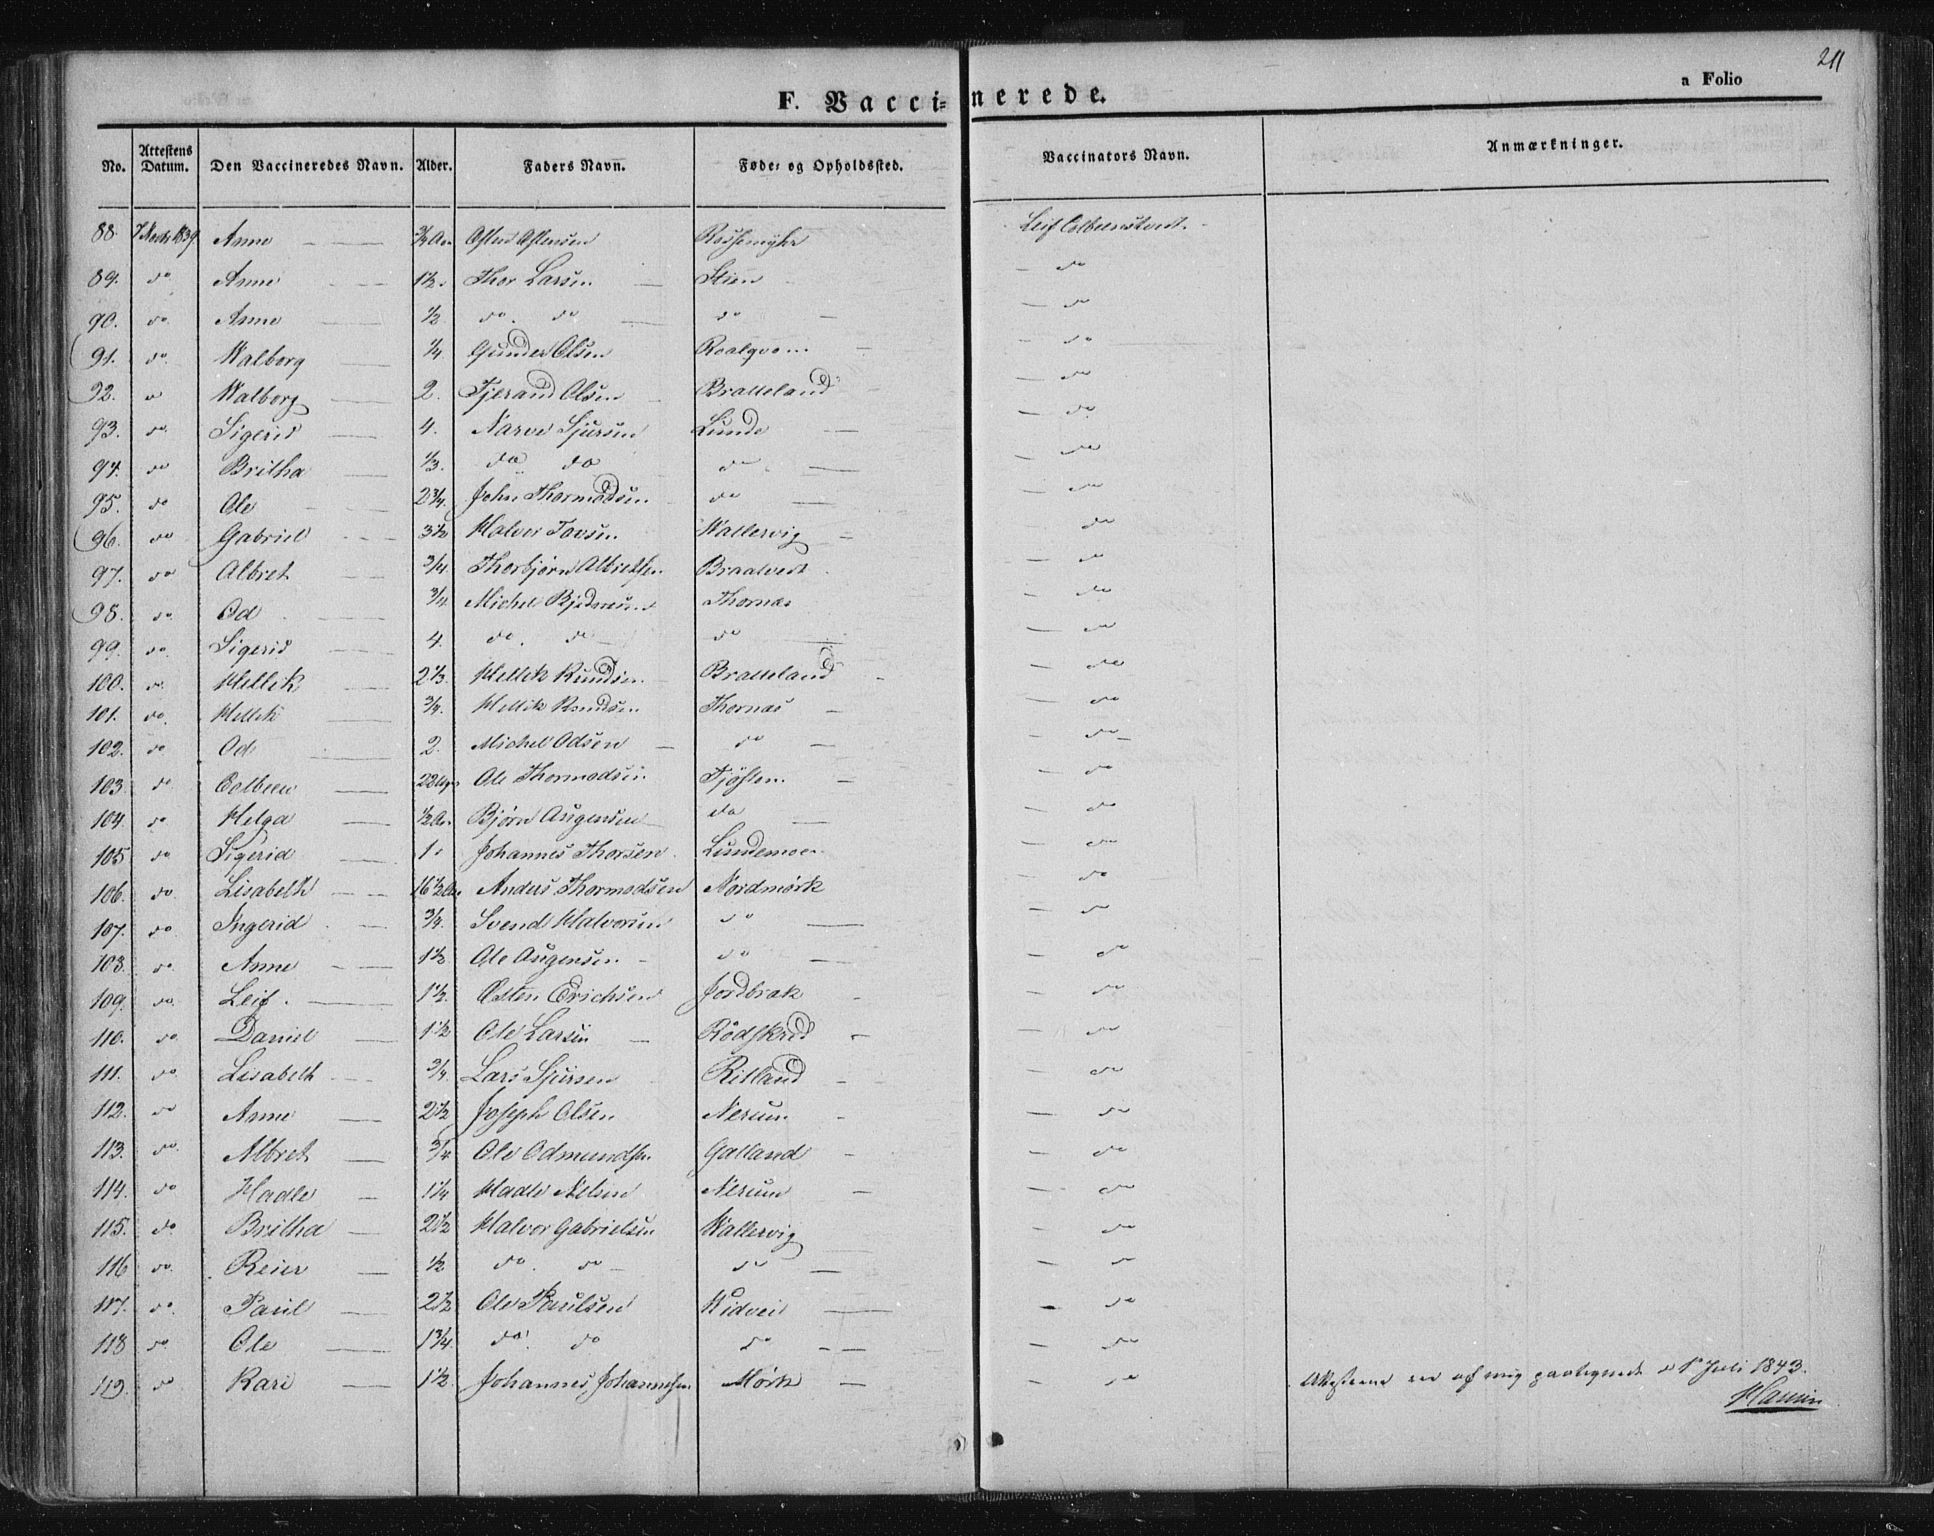 211
a Folio
F. Vaccinerede.
No. Attestens Datum. Den Vaccineredes Navn. Alder. Faders Navn. Føde- og Opholdssted. Vaccinators Navn. Anmærkninger.
88. 1839 Anne 3/4 Aar Osten Ostensen Rossemyhr Leif
89. do Anne 1 1/2 Thor Larsen Stien do
90. do Anne 1/2 do do do do
91. do Walborg 1/4 Gunder Olsen do
92. do Walborg 2. Tjerand Olsen Bratteland do
93. do Sigerid 4. Narve Sjursen Lunde do
94. do Britha 1/3. do do do do
95. do Ole 2 3/4. John Thormodsen do do
96. do Gabriel 3 1/2 Halvor Tovsen Wattervig do
97. do Albret 3/4 Thorbjørn Albretsen Braatvedt do
98. do Od 3/4 Michel Thornæs do
99. do Sigerid 4. do. do do do
100. do Hellik 2 1/3. Hellik Knudsen Bratteland do
101. do. Hellik 3/4. Hellik Knudsen Thornæs do
102. do Od 2. Michel Odsen do do
103. do Colbeen 22 Ole Thormodsen Tjøstem do
104. do Helga 1/2 Aar Bjørn Augensen do do
105 do Sigerid 1 Johannes Thorsen Lundemoe do
106. do. Lisabeth 16 1/2 Anders Thormodsen Nordmørk do
107. do Ingerid 3/4. Svend Halvorsen do do
108. do. Anne 1 1/2 Ole Augensen do do
109. do. Leif 1 1/2. Osten Erichsen Jordbrak do
110. do Daniel 1 1/2 Ole Larsen Rødskred do
111. do Lisabeth 3/4. Lars Sjursen Ritland do
112. do Anne 2 1/2 Joseph Olsen Nerum do
113. do. Albret 3/4 Ole Odmundsen Galland do
114. do Hadle 1 1/4 Hadle Nelsen Nerum do
115. do. Britha 2 1/2 Halvor Gabrielsen Wattervig do
116 do. Reier 1/2 do. do do do
117. do Paul 2 1/2 Ole Paulsen Hidvei do
118 do Ole 1 3/4. do. do do do
119. do Kari 1 1/2. Johannes Johannesen Mørk do Attesterne ere af mig paategnede d 1ste Juli 1843.